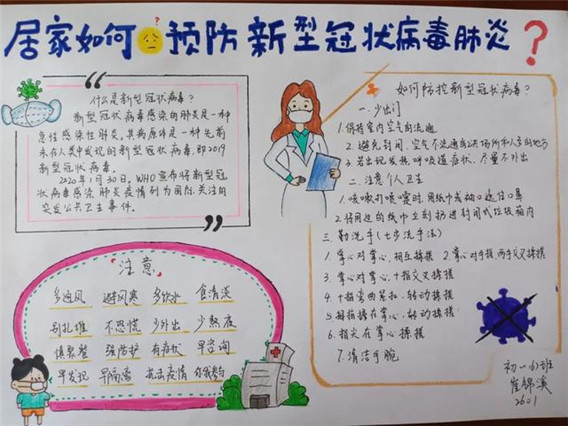 居家如何预防新型冠状病毒肺炎?
什么是新型冠状病毒?
新型冠状病毒感染的肺炎是一种
急性感染性肺炎,其病原体是一种先前
未在人类中发现的新型冠状病毒,即2019
新型冠状病毒.
2020年1月30日,WHO宣布将新型冠
状病毒感染肺炎疫情列为国际关注的
突发公共卫生事件。
注意
多通风 避风寒 多饮水 食清淡
别扎堆 不恐慌 少外出 少熬夜
慎聚餐 强防护 有症状 早咨询
早发现 早隔离 出击疫情 你我努力
如何防控新型冠状病毒?
一.少出门
1.保持室内空气的流通
2.避免封闭、空气不流通的公众场所和人多的地方
3.若出现发热、呼吸道症状,尽量不外出
二.注意个人卫生
1.咳嗽,打喷嚏时,用纸巾或袖口遮住口鼻
2.将用过的纸巾立刻扔进封闭式垃圾箱内
三.勤洗手(七步洗手法)
1.掌心对掌心,相互揉搓 2.掌心对手指,两手交叉揉搓
3.掌心对掌心,十指交叉揉搓
4.十指弯曲紧扣,转动揉搓
5.拇指握在掌心,转动揉搓
6.指尖在掌心揉搓
7.清洁手腕
初一(6)班
崔锦溪
2601